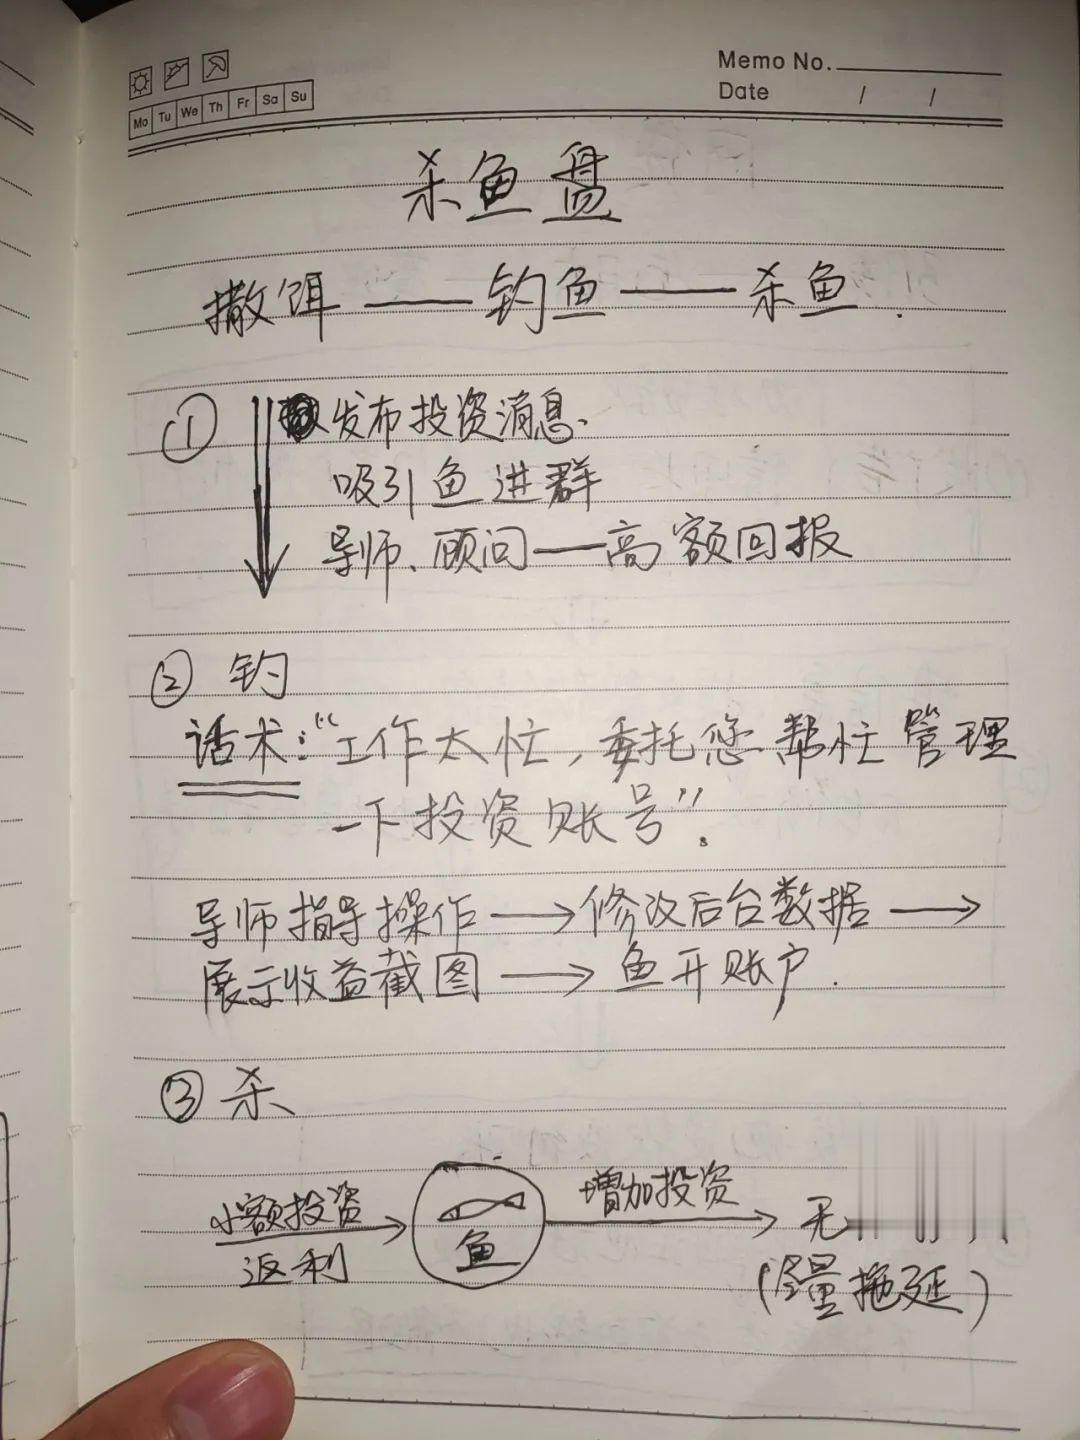 Memo No.
Mo Tu We Th Fr Sa Su
Date / /
杀鱼盘
撒饵——钓鱼——杀鱼.
① 发布投资消息.
吸引鱼进群
导师、顾问——高额回报
② 钓
话术:“工作太忙,委托您帮忙管理
一下投资账号”。
导师指导操作→修改后台数据→
展示收益截图→鱼开账户.
③ 杀
小额投资
返利
鱼
增加投资
无
(尽量拖延)